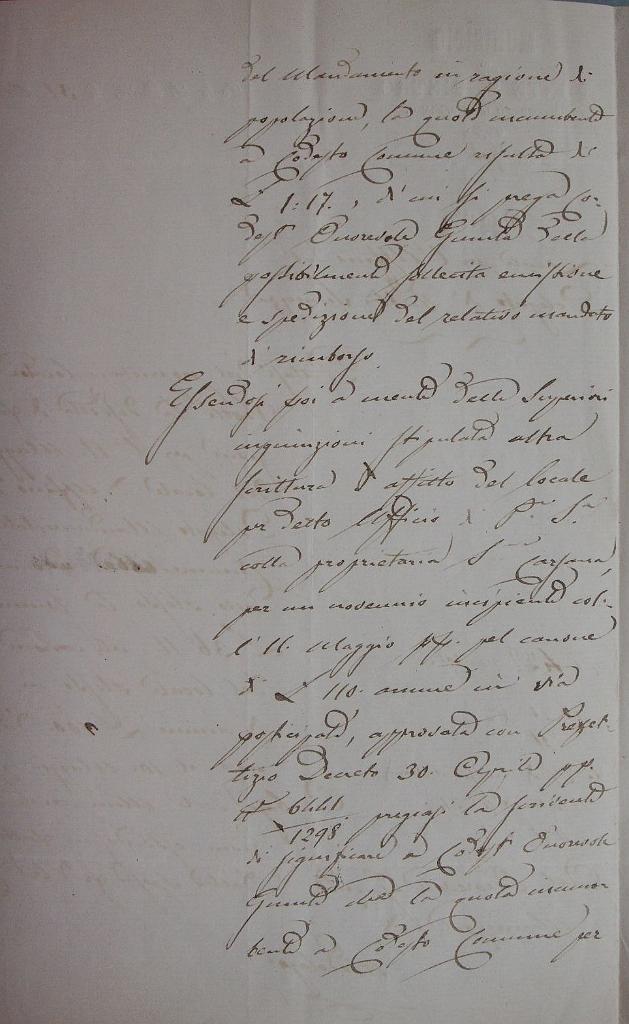 del Mandamento in ragione di
popolazione, la quota incumbente
a Codesto Comune risulta di
L 1:17., di cui si prega Co-
dest' Onorevole Giunta della
possibilmente sollecita emissione
e spedizione del relativo mandato
di rimborso.
Essendosi poi a mente delle Superiori
ingiunzioni stipulata altra
scrittura d'affitto del locale
per detto Ufficio di P.a S.a
colla proprietaria S.a Carsana,
per un novennio incipiente col-
l' 11. Maggio pp. pel canone
di L 110. annue in via
posticipata, approvata con Prefet-
tizio Decreto 30. Aprile pp.
N° 6441/1298 pregiasi la scrivente
di significare a Codest' Onorevole
Giunta che la quota incum-
bente a Codesto Comune per